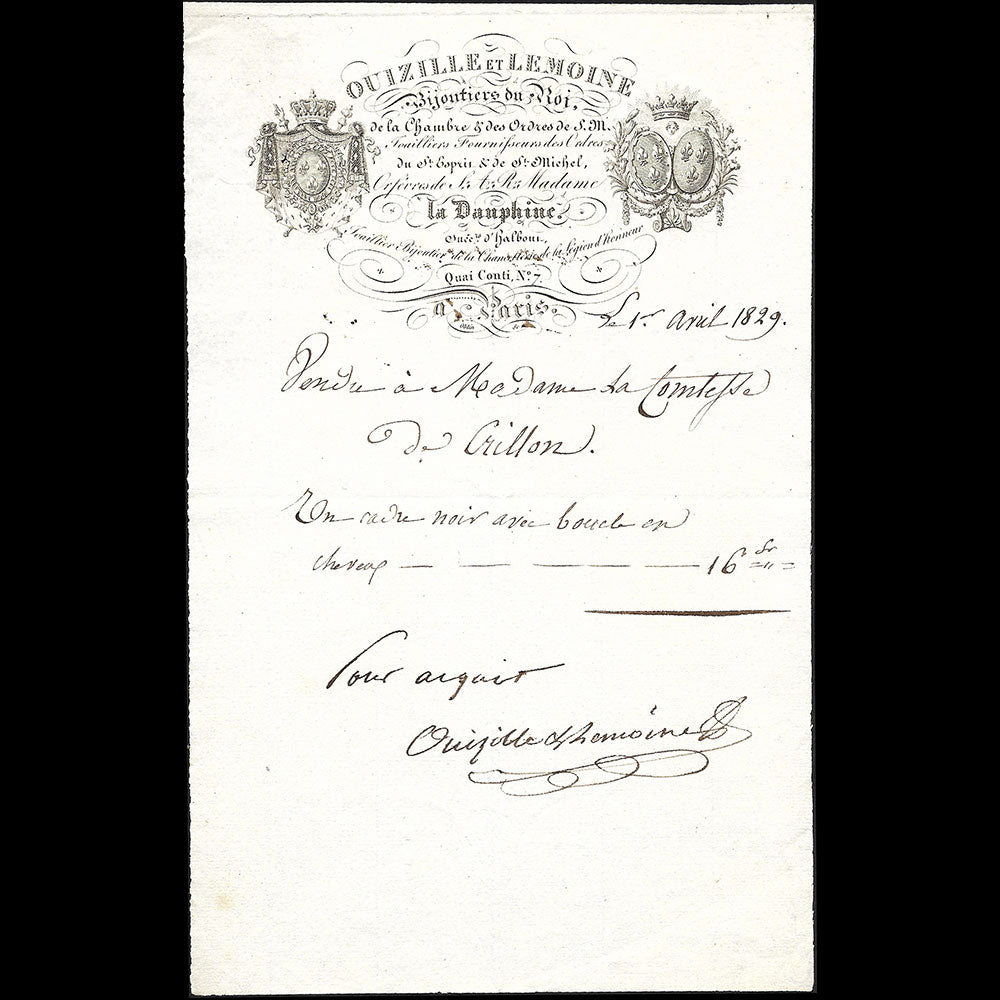 OUIZILLE ET LEMOINE
Bijoutiers du Roi,
de la Chambre & des Ordres de S. M.
Joailliers Fournisseurs des Ordres
du St. Esprit & de St. Michel,
Orfèvres de S. A. R. Madame
la Dauphine.
Succrs. d'Halbout,
Joaillier Bijoutier de la Chancellerie de la Légion d'honneur
Quai Conti, No. 7,
à Paris.
Le 1er Avril 1829.
Vendu à Madame La Comtesse
De Crillon.
Un cadre noir avec boucle en
cheveux — — — — — 16 fr
Pour acquit
Ouizille & Lemoine